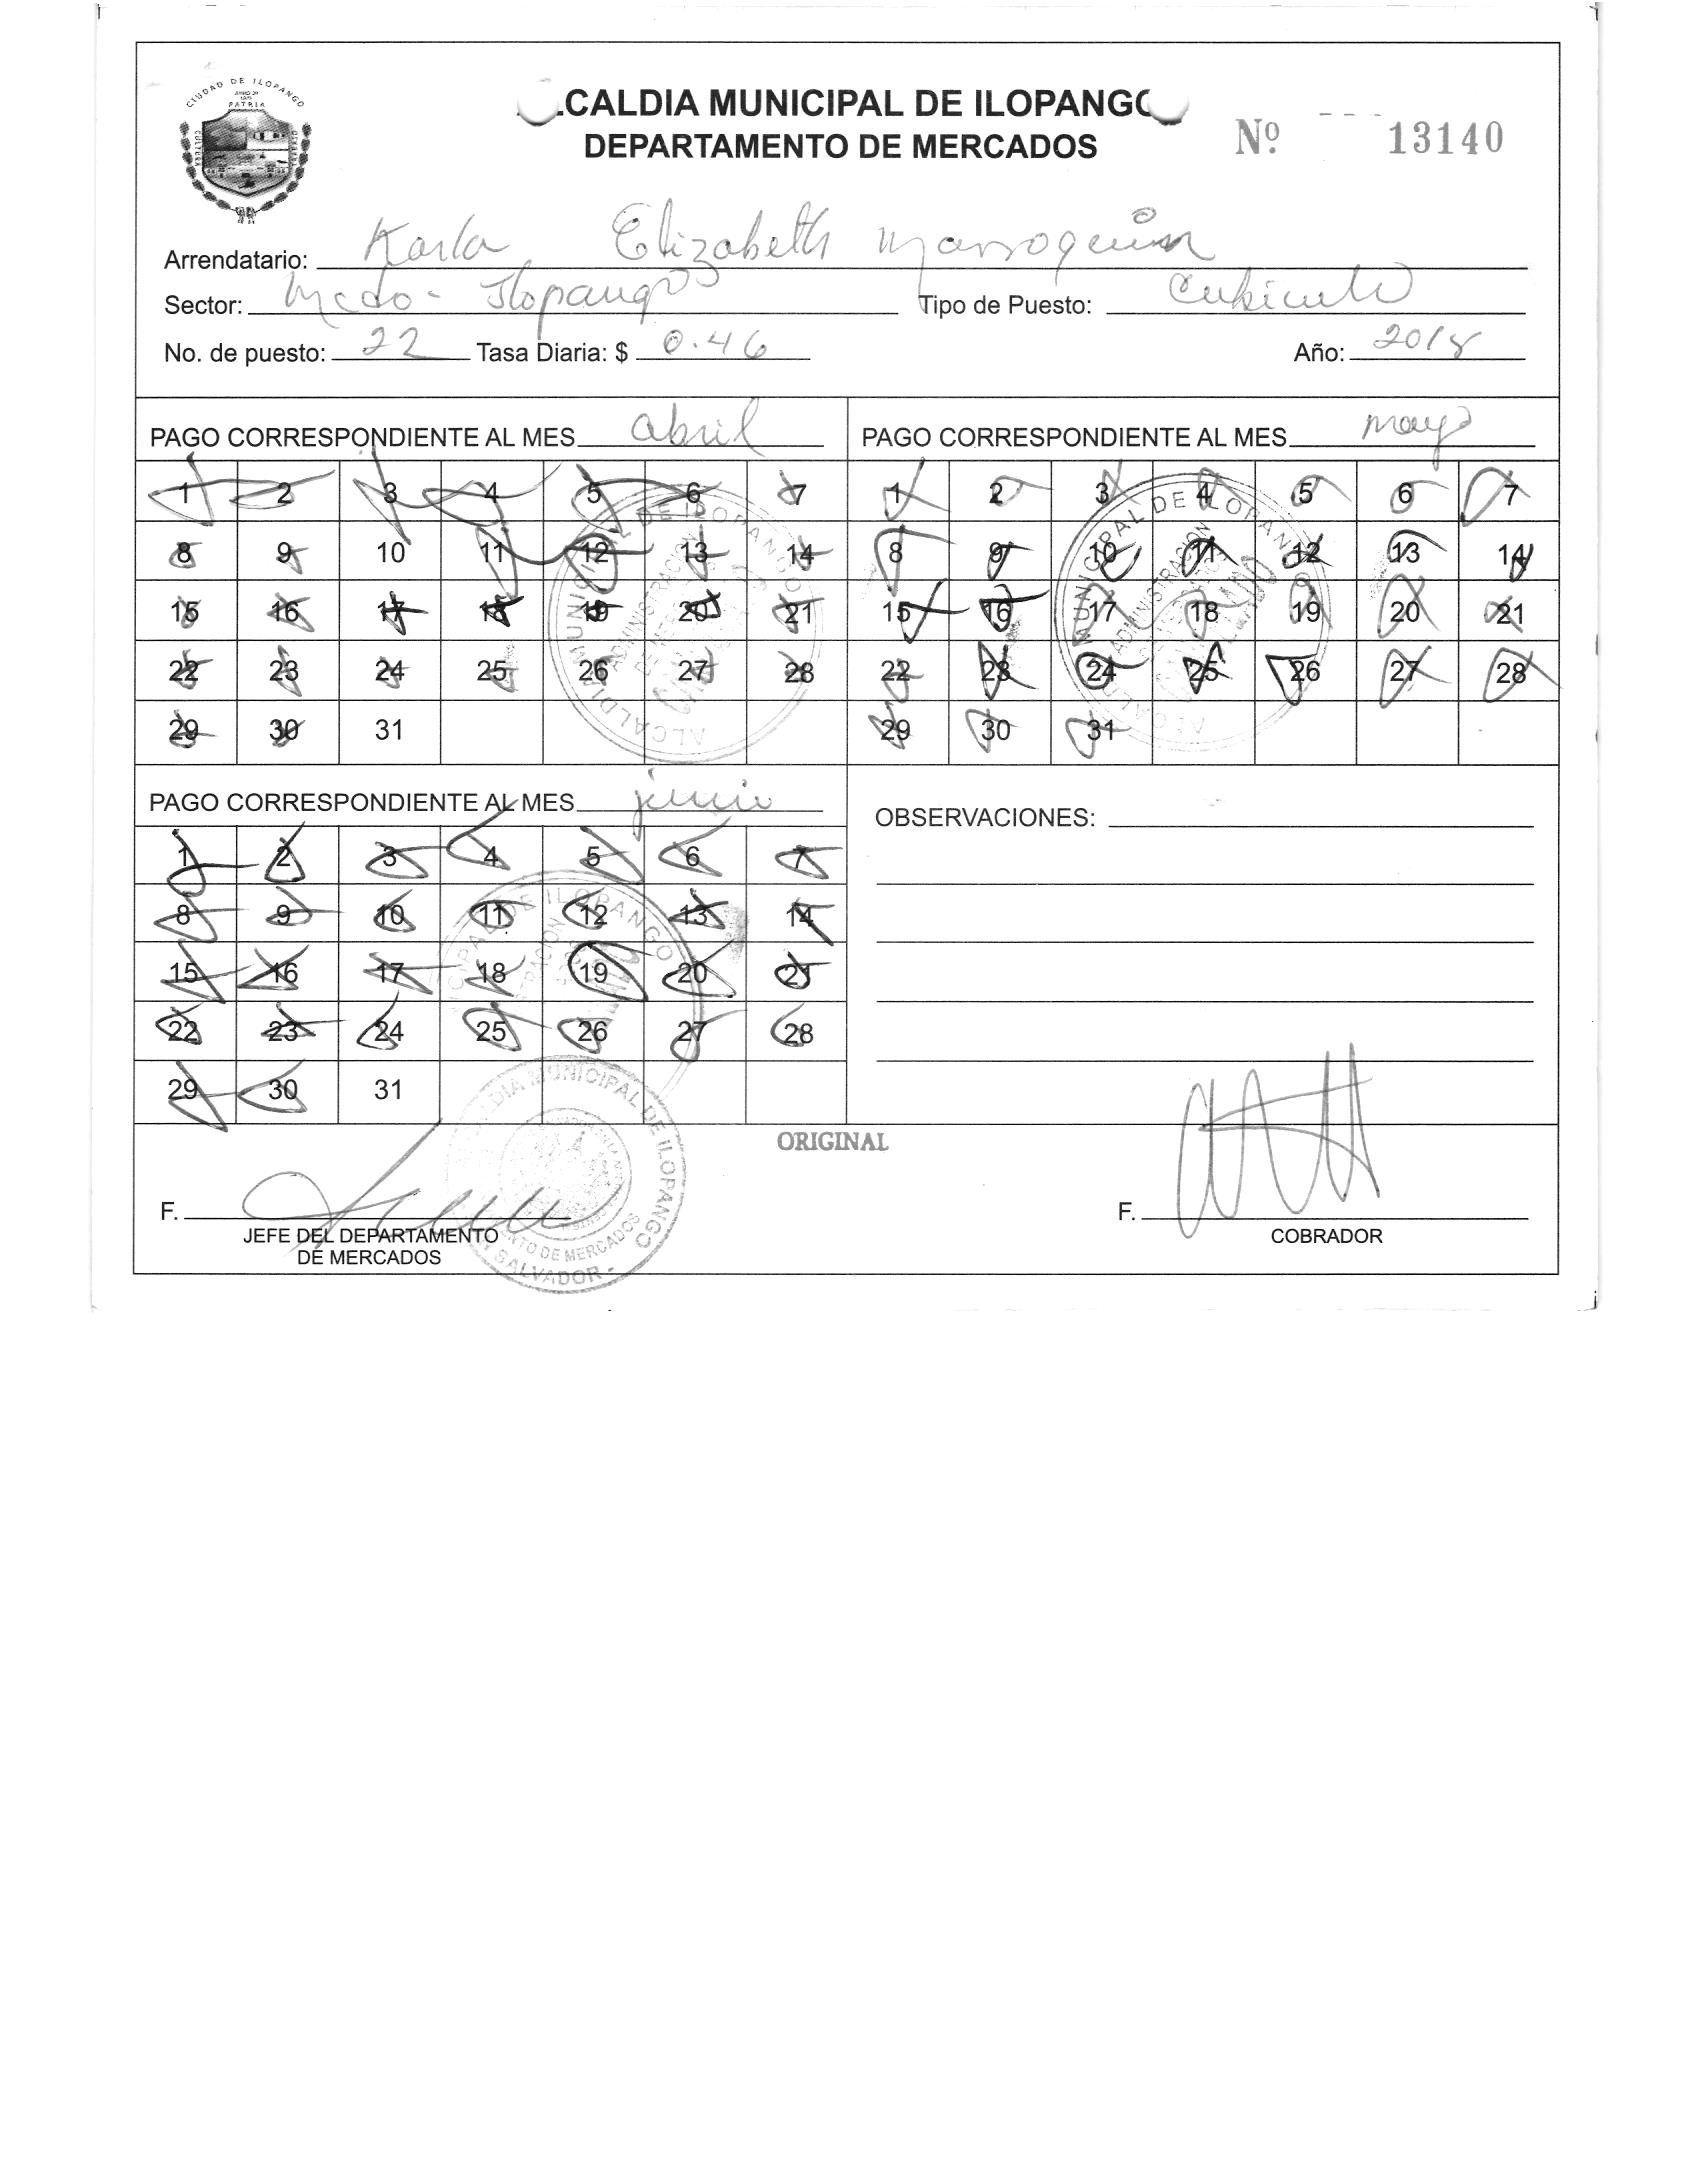 CIUDAD DE ILOPANGO
PATRIA
CULTURA
ALCALDIA MUNICIPAL DE ILOPANGO
DEPARTAMENTO DE MERCADOS
Nº 13140
Arrendatario: Karla Elizabeth Marroquin
Sector: Mcdo - Ilopango Tipo de Puesto: Cubiculo
No. de puesto: 22 Tasa Diaria: $ 0.46 Año: 2018
PAGO CORRESPONDIENTE AL MES abril
1 2 3 4 5 6 7
8 9 10 11 12 13 14
15 16 17 18 19 20 21
22 23 24 25 26 27 28
29 30 31
ALCALDIA MUNICIPAL DE ILOPANGO
ADMINISTRACION
PAGO CORRESPONDIENTE AL MES mayo
1 2 3 4 5 6 7
8 9 10 11 12 13 14
15 16 17 18 19 20 21
22 23 24 25 26 27 28
29 30 31
ALCALDIA MUNICIPAL DE ILOPANGO
ADMINISTRACION
PAGO CORRESPONDIENTE AL MES junio
1 2 3 4 5 6 7
8 9 10 11 12 13 14
15 16 17 18 19 20 21
22 23 24 25 26 27 28
29 30 31
OBSERVACIONES:
ORIGINAL
F.
JEFE DEL DEPARTAMENTO
DE MERCADOS
MUNICIPAL DE ILOPANGO
DE MERCADOS
SALVADOR -
F.
COBRADOR